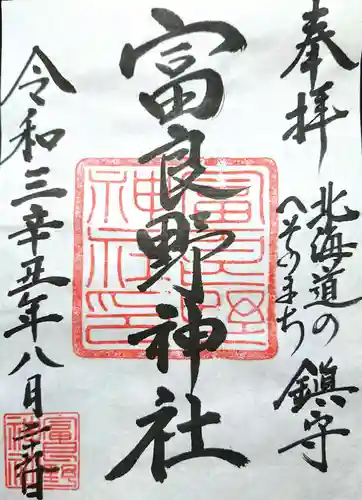 奉拝
北海道の
へそのまち
鎮守
富良野神社
富良野神社印
令和三辛丑年八月
富良野神社